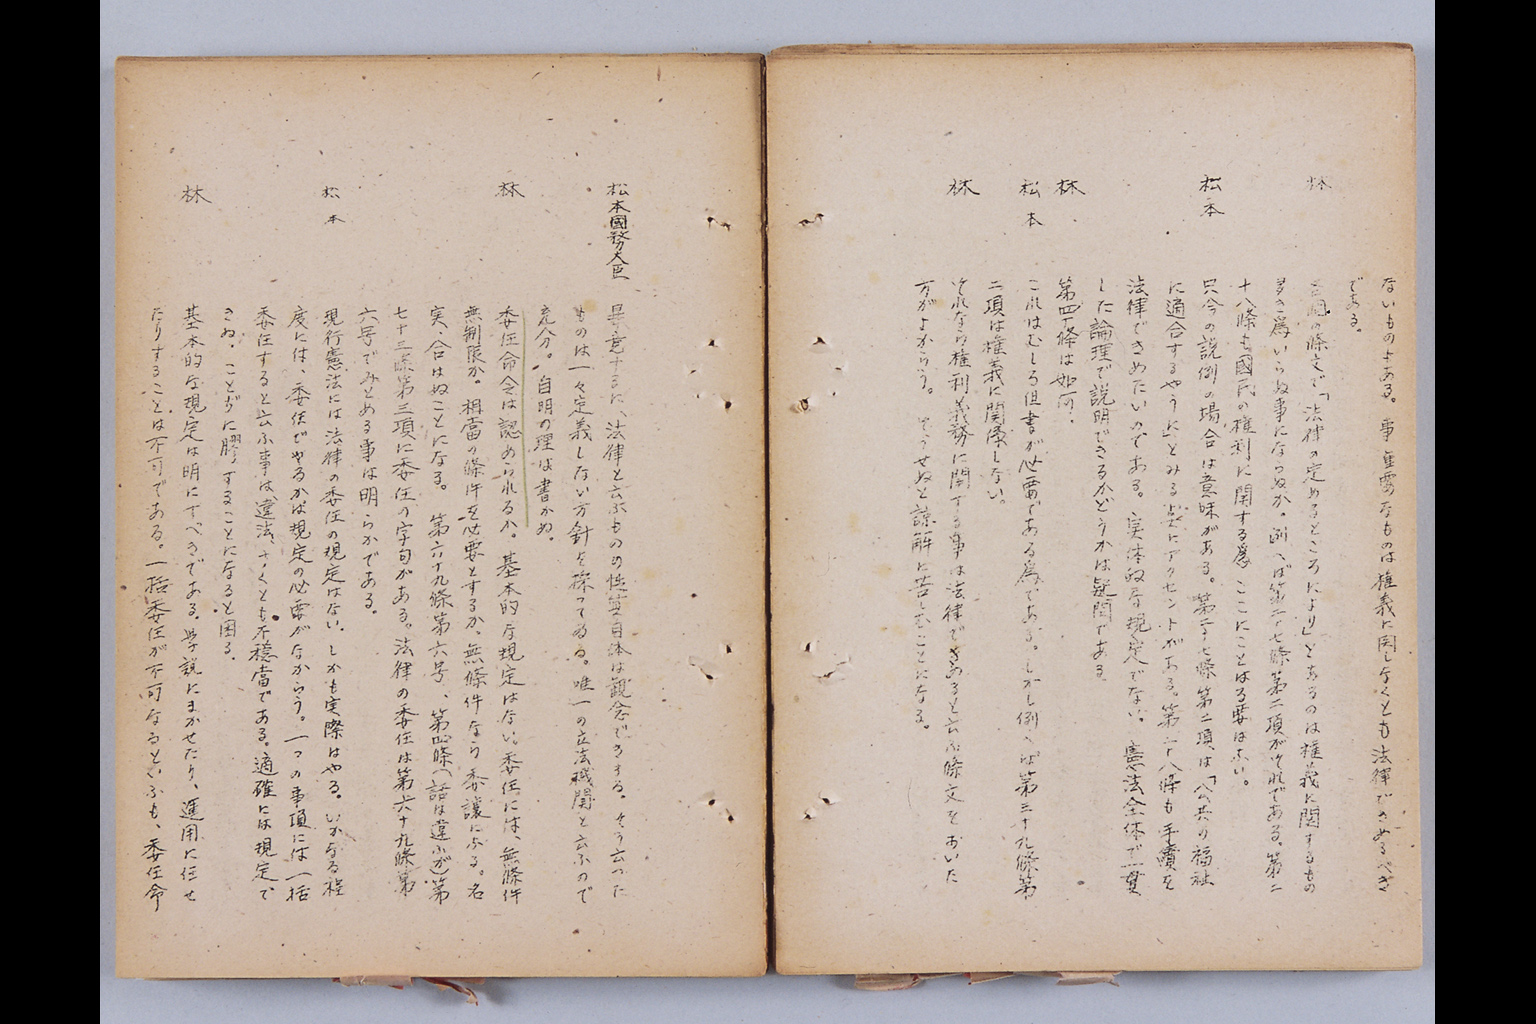 ないものもある。事重要なものは権義に関しなくとも法律できめるべき
である。
林 各個の條文で「法律の定めるところにより」とあるのは権義に関するもの
多き為いらぬ事にならぬか。例へば第二十七條第二項がそれである。第二
十八條も國民の権利に関する為ここにことはる要はない。
松本 只今の説例の場合は意味がある。第二十七條第二項は「公共の福祉
に適合するやうに」とみる点にアクセントがある。第二十八條も手續を
法律できめたいのである。実体的な規定でない。憲法全体で一貫
した論理で説明できるかどうかは疑問である。
林 第四十條は如何。
松本 これはむしろ但書が必要である為である。しかし例へば第三十九條第
二項は権義に関係しない。
林 それなら権利義務に関する事は法律できめると云ふ條文をおいた
方がよからう。そうせぬと諒解に苦しむことになる。
松本國務大臣 要するに、法律と云ふものの性質自体は観念できする。そう云つた
ものは一々定義しない方針を採つてゐる。唯一の立法機関と云ふので
充分。自明の理は書かぬ。
林 委任命令は認められるか。基本的な規定はない。委任には、無條件
無制限か。相當の條件を必要とするか、無條件なら委譲になる。名
実、合はぬことになる。第六十九條第六号、第四條(話は違ふが)第
七十三條第三項に委任の字句がある。法律の委任は第六十九條第
六号でみとめる事は明らかである。
松本 現行憲法には法律の委任の規定はない。しかも実際はやる。いかなる程
度には、委任でやるかは規定の必要がなからう。一つの事項には一括
委任すると云ふ事は違法、さくとも不穏當である。適確には規定で
きぬ。ことばに膠することになると困る。
林 基本的な規定は明にすべきである。学説にまかせたり、運用に任せ
たりすることは不可である。一括委任が不可なるといふも、委任命